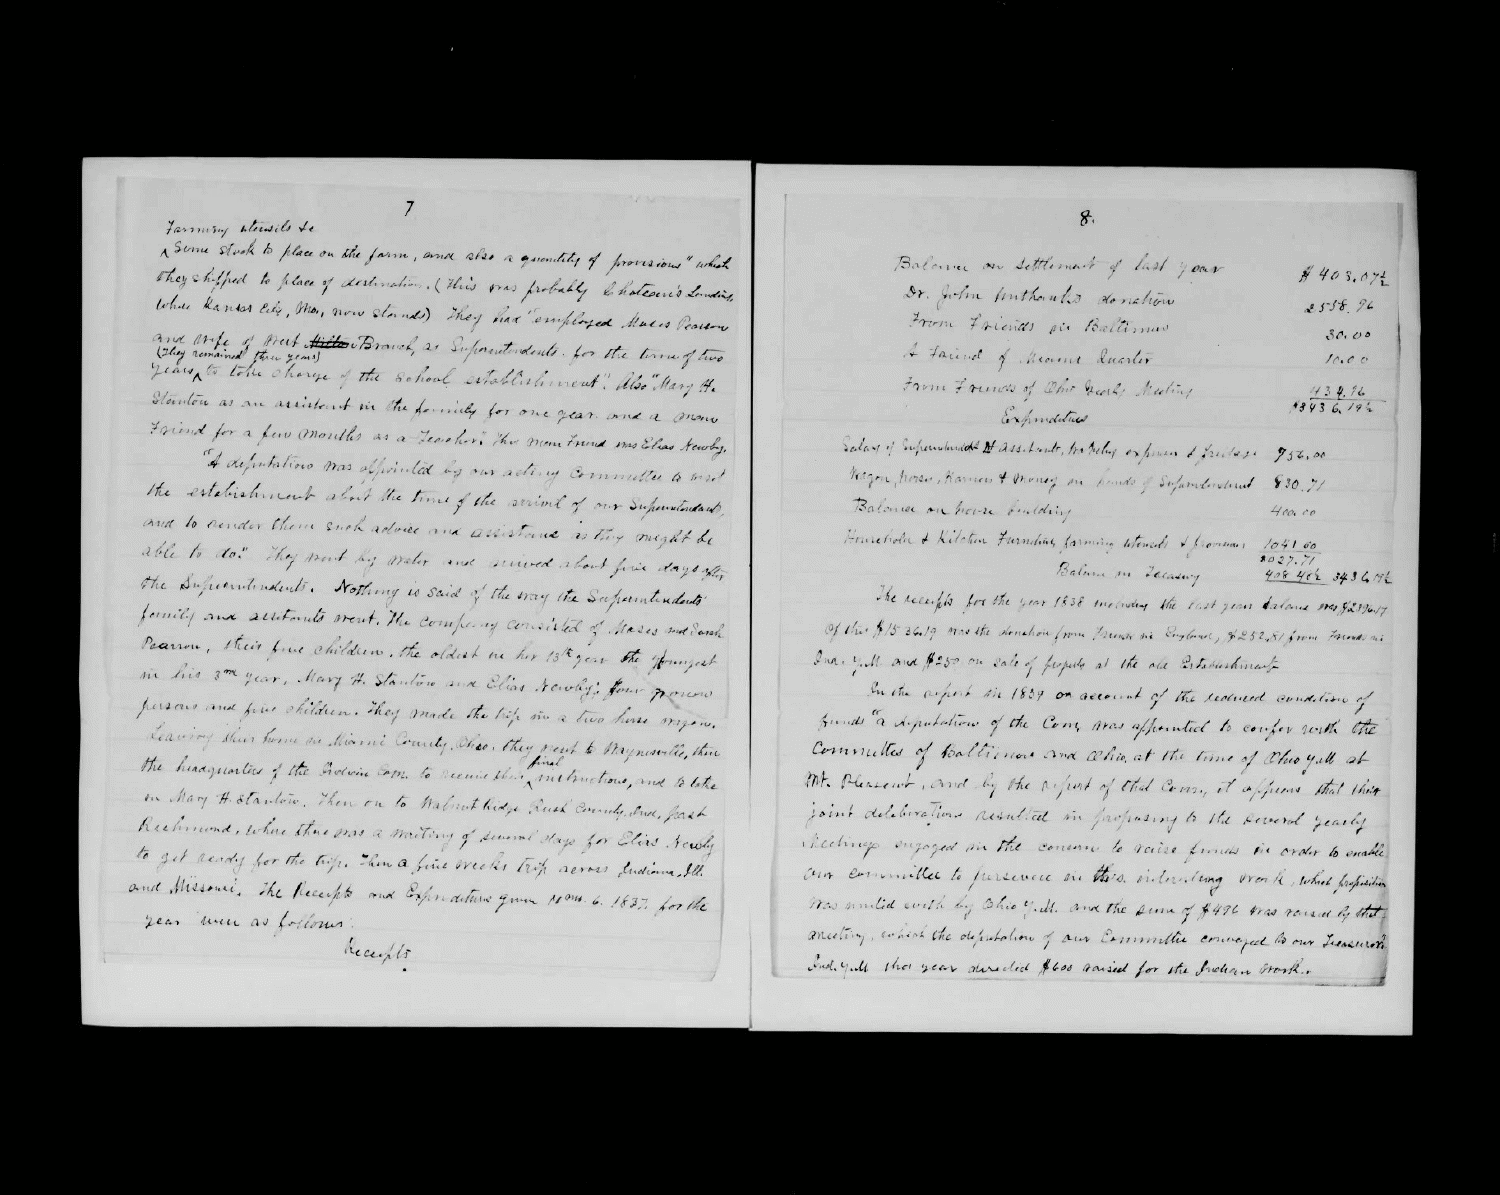 7
Farming utensils &c
^ Some stock to place on the farm, and also a quantity of provisions" which
they shipped to place of destination. (This was probably Choteau's Landing
where Kansas City, Mo., now stands) They had "employed Moses Pearson
and wife of West Milton Branch, as Superintendents for the term of two
(They remained three years)
years ^ to take charge of the school establishment". Also "Mary H.
Stanton as an assistant in the family for one year and a man
Friend for a few months as a Teacher". The man Friend was Elias Newby.
"A deputation was appointed by our acting Committee to visit
the establishment about the time of the arrival of our Superintendents,
and to render them such advice and assistance as they might be
able to do." They went by water and arrived about five days after
the Superintendents. Nothing is said of the way the Superintendents
family and assistants went. The company consisted of Moses and Sarah
Pearson, their five children, the oldest in her 13th year the youngest
in his 3rd year, Mary H. Stanton and Elias Newby; four grown
persons and five children. They made the trip in a two horse wagon.
Leaving their home in Miami County, Ohio, they went to Waynesville, then
final
the headquarters of the Indian Com. to receive their ^ instructions, and to take
in Mary H. Stanton. Then on to Walnut Ridge Rush County, Ind, past
Richmond, where there was a waiting of several days for Elias Newby
to get ready for the trip. Then a five weeks trip across Indiana, Ill.
and Missouri. The Receipts and Expenditures given 10 mo. 6. 1837 for the
year were as follows:
Receipts
8.
Balance on settlement of last year $403.07½
Dr. John Unthanks donation 2558.96
From Friends in Baltimore 30.00
A Friend of Miami Quarter 10.00
From Friends of Ohio Yearly Meeting 434.16
$3436.19½
Expenditures
Salary of Superintendents & assistant, traveling expenses & freitage 756.00
Wagon, horses, Harness & money in hands of Superintendent 830.71
Balance on house building 400.00
Household & Kitchen Furniture, farming utensils & provisions 1041.00
3027.71
Balance in Treasury 408.48½ 3436.19½
The receipts for the year 1838 including the last years balance was
Of this $1536.19 was the donation from Friends in England, $252.81 from Friends in
Ind. Y.M. and $250 on sale of property at the old Establishment
In the report in 1839 on account of the reduced condition of
funds "a deputation of the Com. was appointed to confer with the
Committees of Baltimore and Ohio, at the time of Ohio Y.M. at
Mt. Pleasant, and by the report of that Com., it appears that their
joint deliberations resulted in proposing to the several yearly
Meetings engaged in the concern to raise funds in order to enable
our committee to persevere in this interesting work, which proposition
was united with by Ohio Y.M. and the sum of $496 was raised by that
meeting, which the deputation of our Committee conveyed to our Treasurer".
Ind. Y.M. this year directed $600 raised for the Indian work.